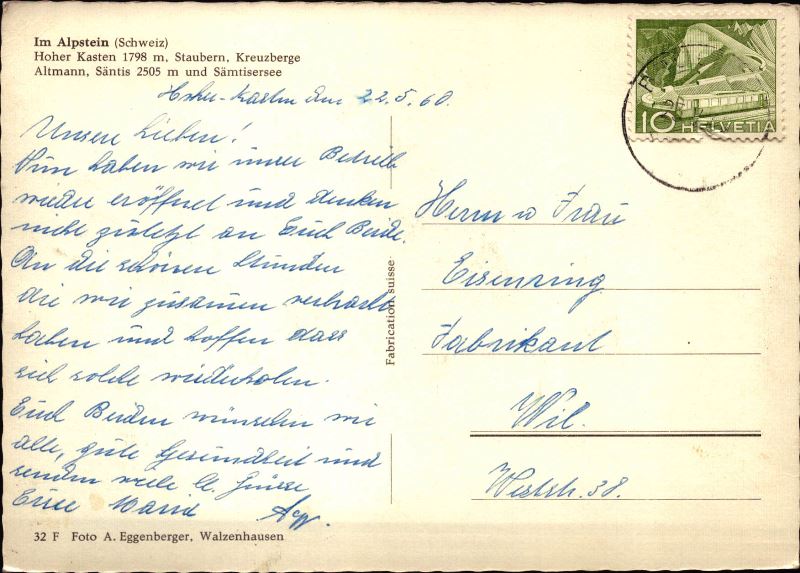 Im Alpstein (Schweiz)
Hoher Kasten 1798 m, Staubern, Kreuzberge
Altmann, Säntis 2505 m und Sämtisersee
Hoher-Kasten den 22.5.60.
Unsere Lieben!
Nun haben wir unser Betrieb
wieder eröffnet und denken
nicht zuletzt an Euch Beide.
An die schönen Stunden
die wir zusamen verbracht
haben und hoffen dass
sich solche wiederholen.
Euch Beiden wünschen wir
alle, gute Gesundheit und
senden viele lb. Grüsse
Eure
32 F Foto A. Eggenberger, Walzenhausen
Fabrication suisse
10 HELVETIA
Herrn u Frau
Eisenring
Fabrikant
Wil.
Weststr. 38.